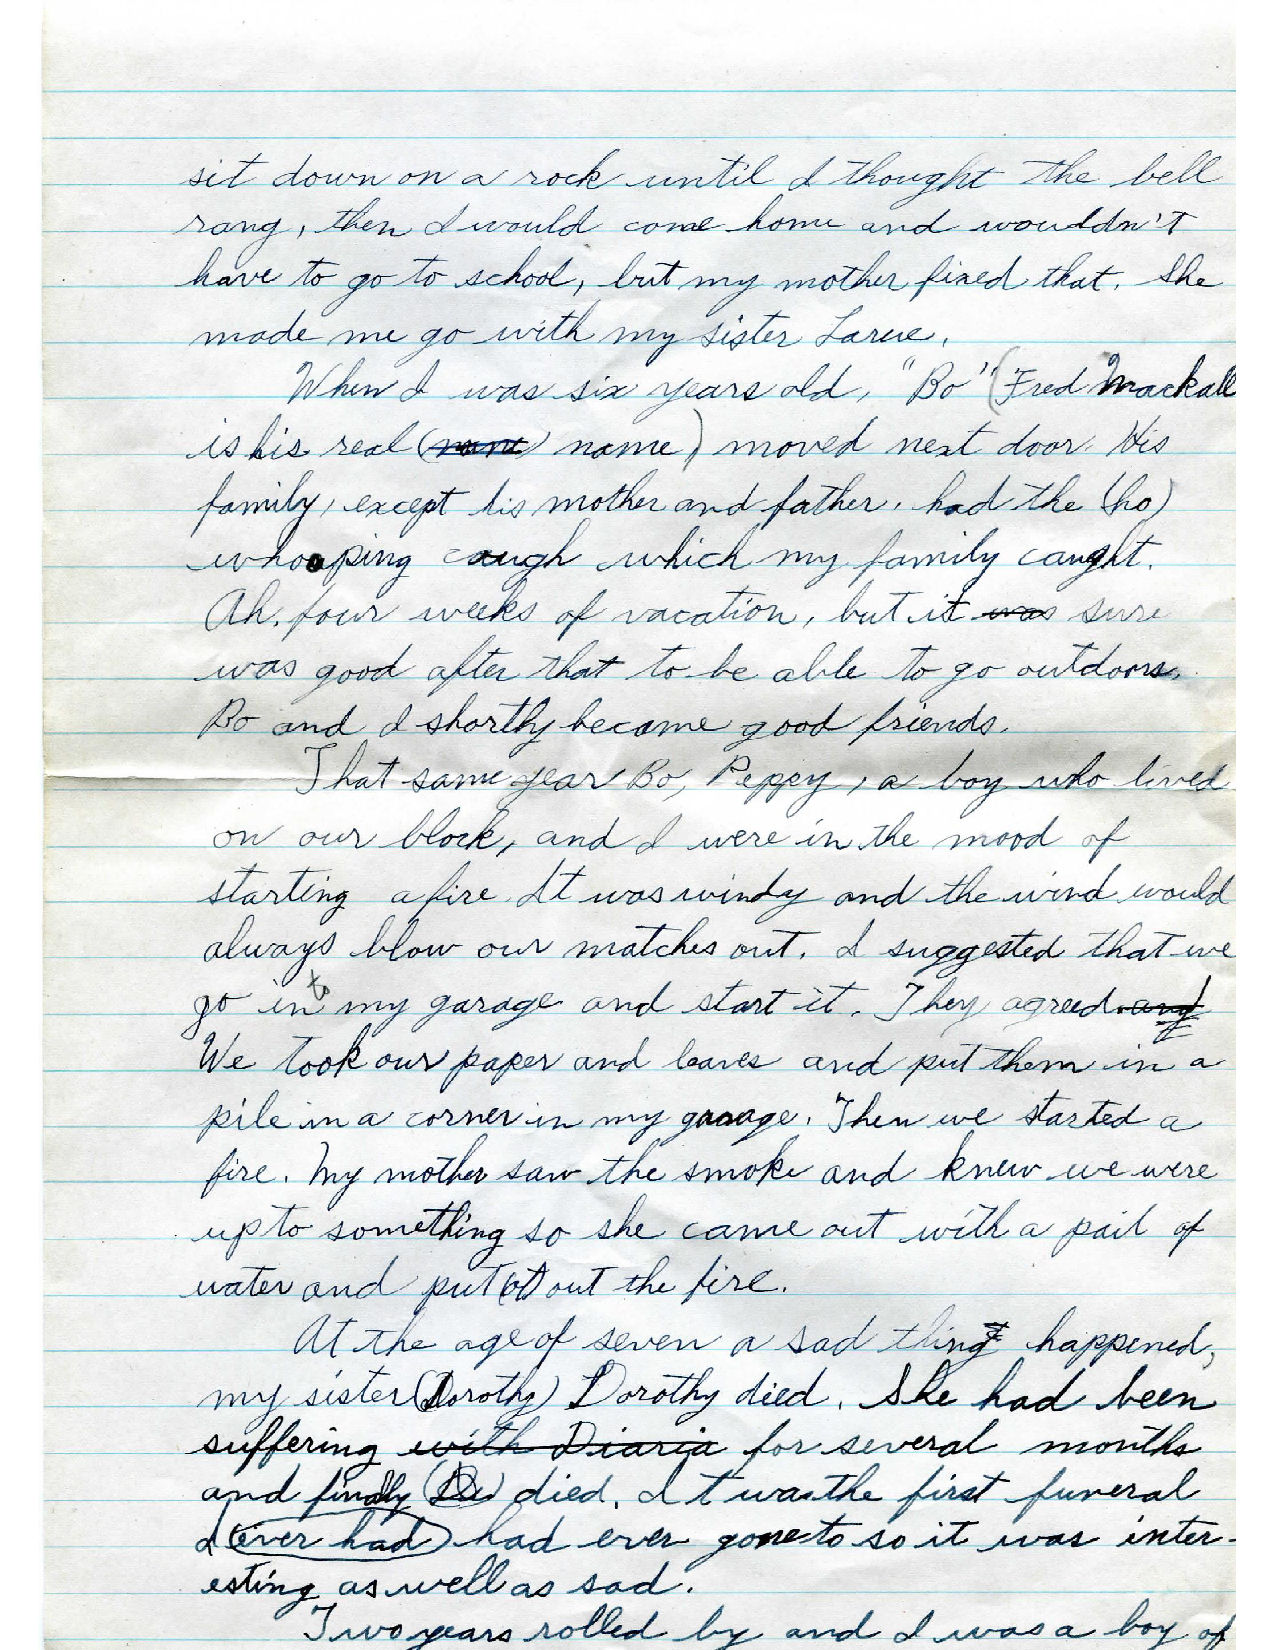 sit down on a rock until I thought the bell
rang, then I would come home and wouldn't
have to go to school, but my mother fixed that. She
made me go with my sister Larue.
When I was six years old, "Bo" (Fred Mackall
is his real (name) name) moved next door. His
family, except his mother and father, had the (ho)
whooping caugh which my family caught.
Ah, four weeks of vacation, but it was sure
was good after that to be able to go outdoors.
Bo and I shortly became good friends.
That same year Bo, Peppy, a boy who lived
on our block, and I were in the mood of
starting a fire. It was windy and the wind would
always blow our matches out. I suggested that we
go into my garage and start it. They agreed. and
We took our paper and leaves and put them in a
pile in a corner in my garage. Then we started a
fire. My mother saw the smoke and knew we were
up to something so she came out with a pail of
water and put (ot) out the fire.
At the age of seven a sad thing happened,
my sister (Dorothy) Dorothy died. She had been
suffering with Diaria for several months
and finally died. It was the first funeral
I (ever had) had ever gone to so it was inter-
esting as well as sad.
Two years rolled by and I was a boy of